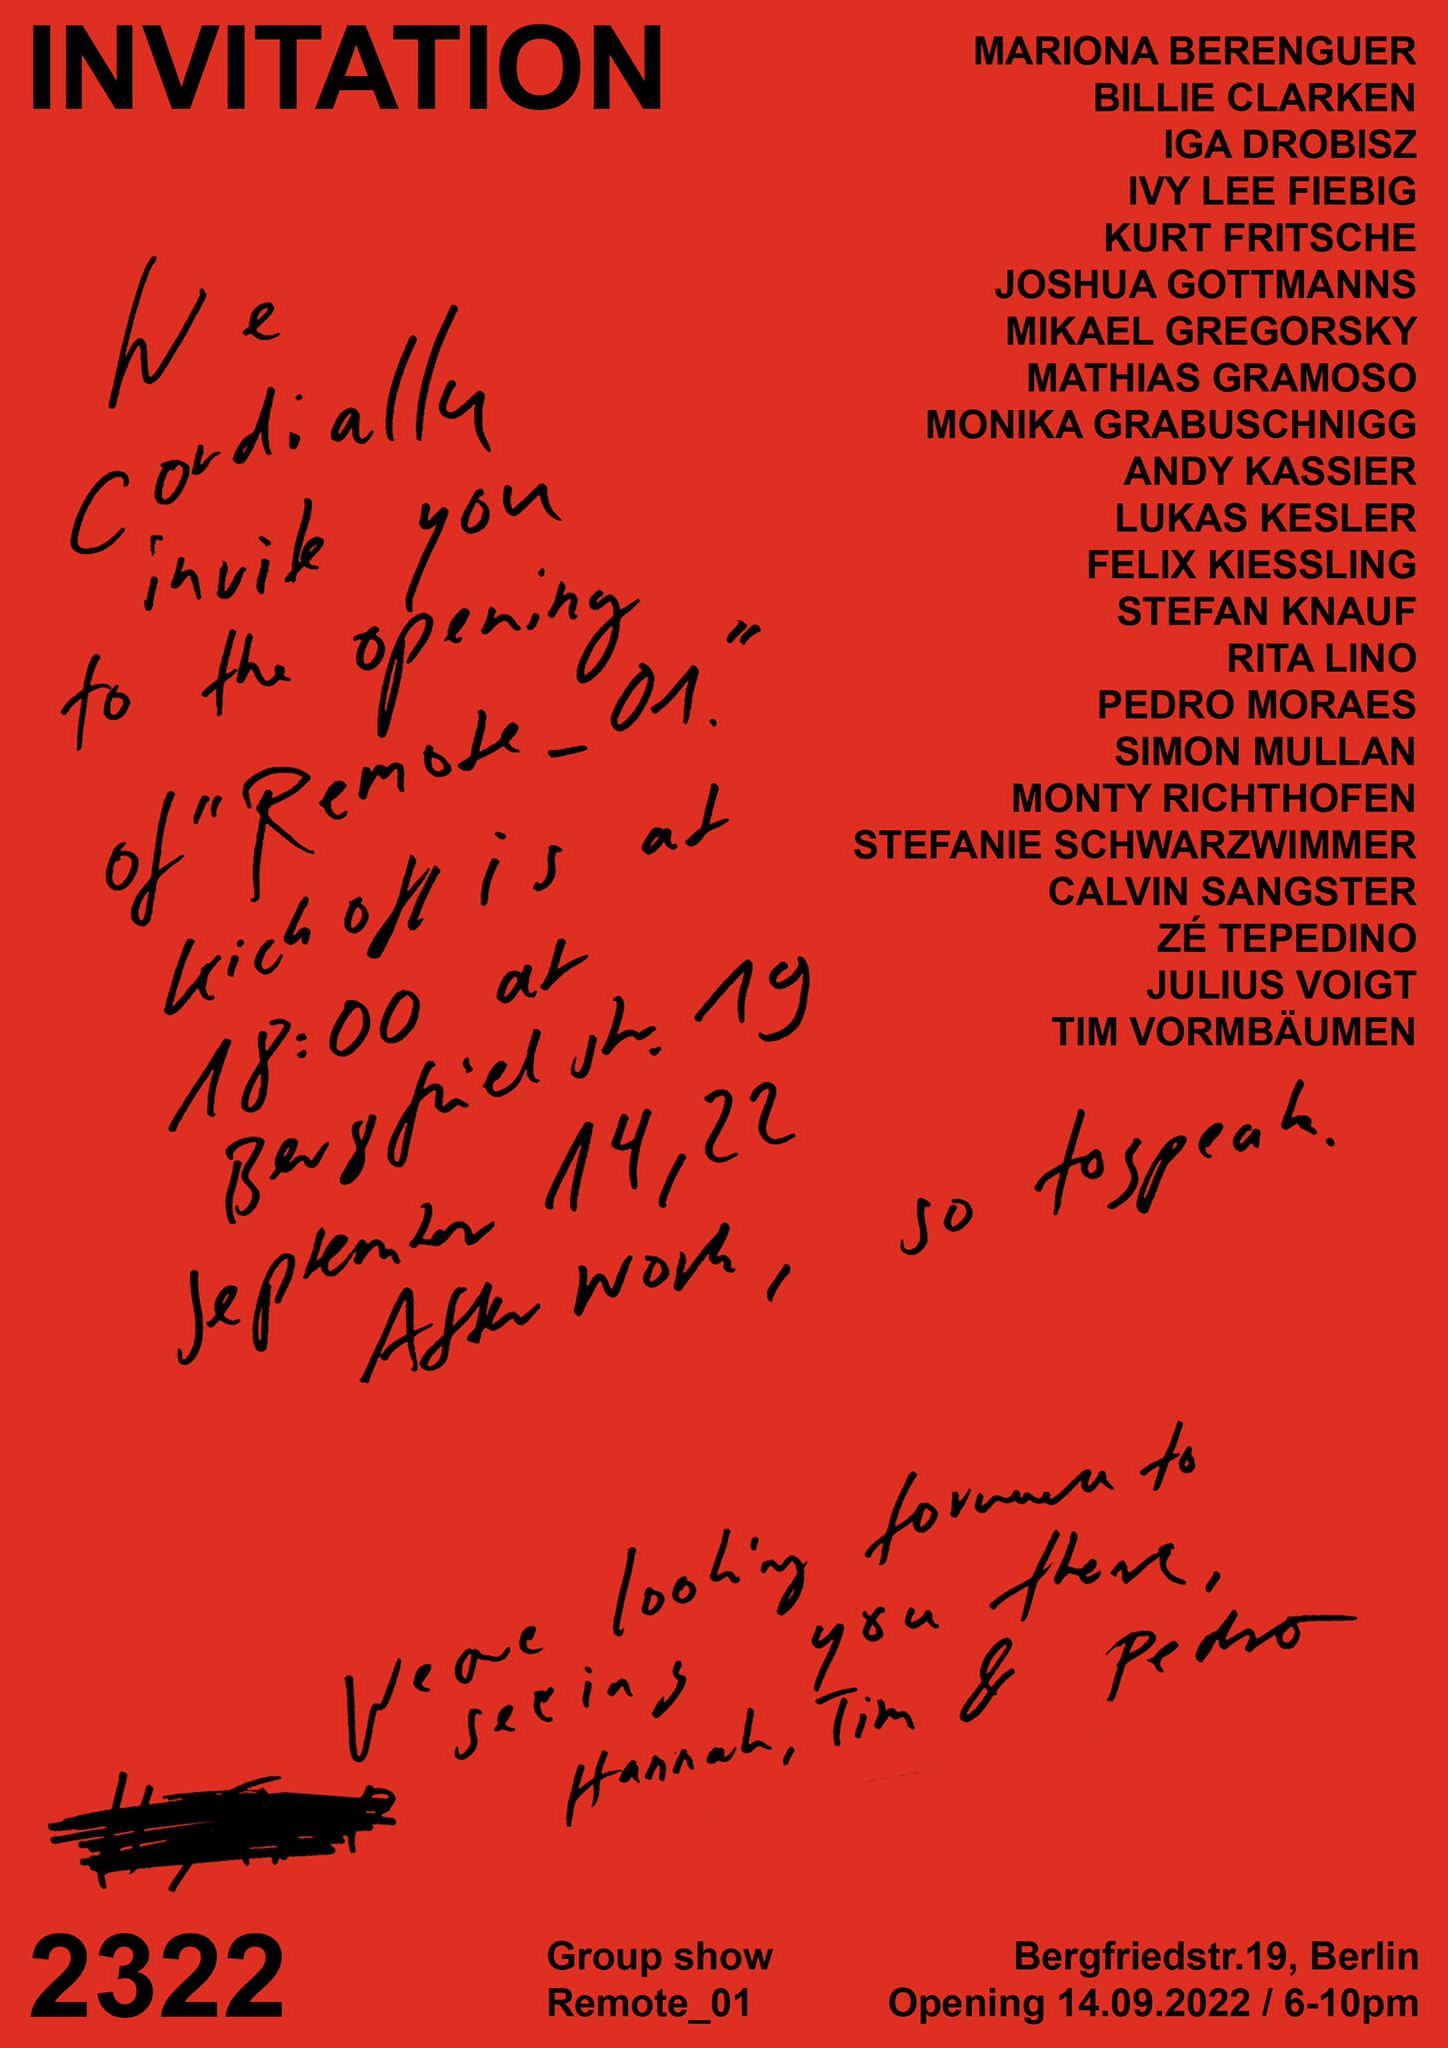 INVITATION
MARIONA BERENGUER
BILLIE CLARKEN
IGA DROBISZ
IVY LEE FIEBIG
KURT FRITSCHE
JOSHUA GOTTMANNS
MIKAEL GREGORSKY
MATHIAS GRAMOSO
MONIKA GRABUSCHNIGG
ANDY KASSIER
LUKAS KESLER
FELIX KIESSLING
STEFAN KNAUF
RITA LINO
PEDRO MORAES
SIMON MULLAN
MONTY RICHTHOFEN
STEFANIE SCHWARZWIMMER
CALVIN SANGSTER
ZÉ TEPEDINO
JULIUS VOIGT
TIM VORMBÄUMEN
We
Cordially
invite you
to the opening
of "Remote_01."
kick off is at
18:00 at
Bergfriedstr. 19
September 14, 22
After work, so to speak.
We are looking forward to
seeing you there,
Hannah, Tim & Pedro
2322
Group show
Remote_01
Bergfriedstr.19, Berlin
Opening 14.09.2022 / 6-10pm